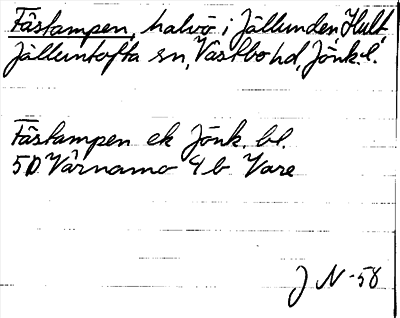 Fästampen, halvö i Jällunden, Hult,
Jälluntofta sn, Västbo hd, Jönk. l.
Fästampen ek Jönk. bl.
5D Värnamo 4 b Vare
J N -58